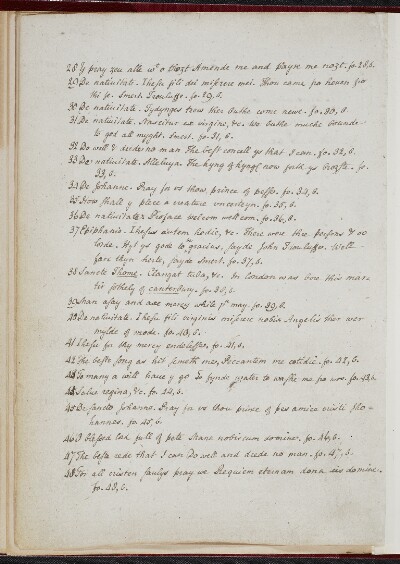 28 I pray you alle wt o thozt Amende me and payre me nozt. fo. 28, b.
29 De nativitate. Ihesu fili dei miserere mei. Thou came fro heven fro
thi se. Smert. Trouluffe. fo. 29, b.
30 De nativitate. Tydynges trew ther buthe come newe. fo. 30, b.
31 De nativitate. Nascitur ex virgine, &c. We buthe muche bounde
to god all myght. Smert. fo. 31, b.
32 Do well & drede no man The best conceill ys that I can. fo. 32, b.
33 De nativitate. Alleluya. The kyng of kyngs now forth ys brozt. fo.
33, b.
34 De Johanne. Pray for us thow prince of pesse. fo. 34, b.
35 How shall y plece a creature uncerteyn. fo. 35, b.
36 De nativitate. Proface welcom wellcom. fo. 36, b.
37 Epiphanie. Ihesus autem hodie, &c. There were thre persons & oo
Lode. Hyt ys gode to gracius, sayde John Trouluffe. Well
fare thyn herte, sayde Smert. fo. 37, b.
38 Sancte Thome. Clangat tuba, &c. In London was bore this mar-
tir sothely of canterbury. fo. 38, b.
39 Man asay and axe mercy while thou may. fo. 39, b.
40 De nativitate. Ihesu fili virginis miserere nobis. Angelis ther wer
mylde of mode. fo. 40, b.
41 Ihesu for thy mercy endelesse. fo. 41, b.
42 The beste song as hit semeth me, Peccantem me cotidie. fo. 42, b.
43 To many a will have y go To fynde water to washe me fro wo. fo. 43, b.
44 Salve regina, &c. fo. 44, b.
45 De sancto Johanne. Pray for us thou prince of pes amice cristi Jho-
hannes. fo. 45, b.
46 O blessed lord full of pete Mane nobiscum domine. fo. 46, b.
47 The beste rede that I can Do well and drede no man. fo. 47, b.
48 For all cristen saulys pray we Requiem eternam dona eis domine.
fo. 48, b.